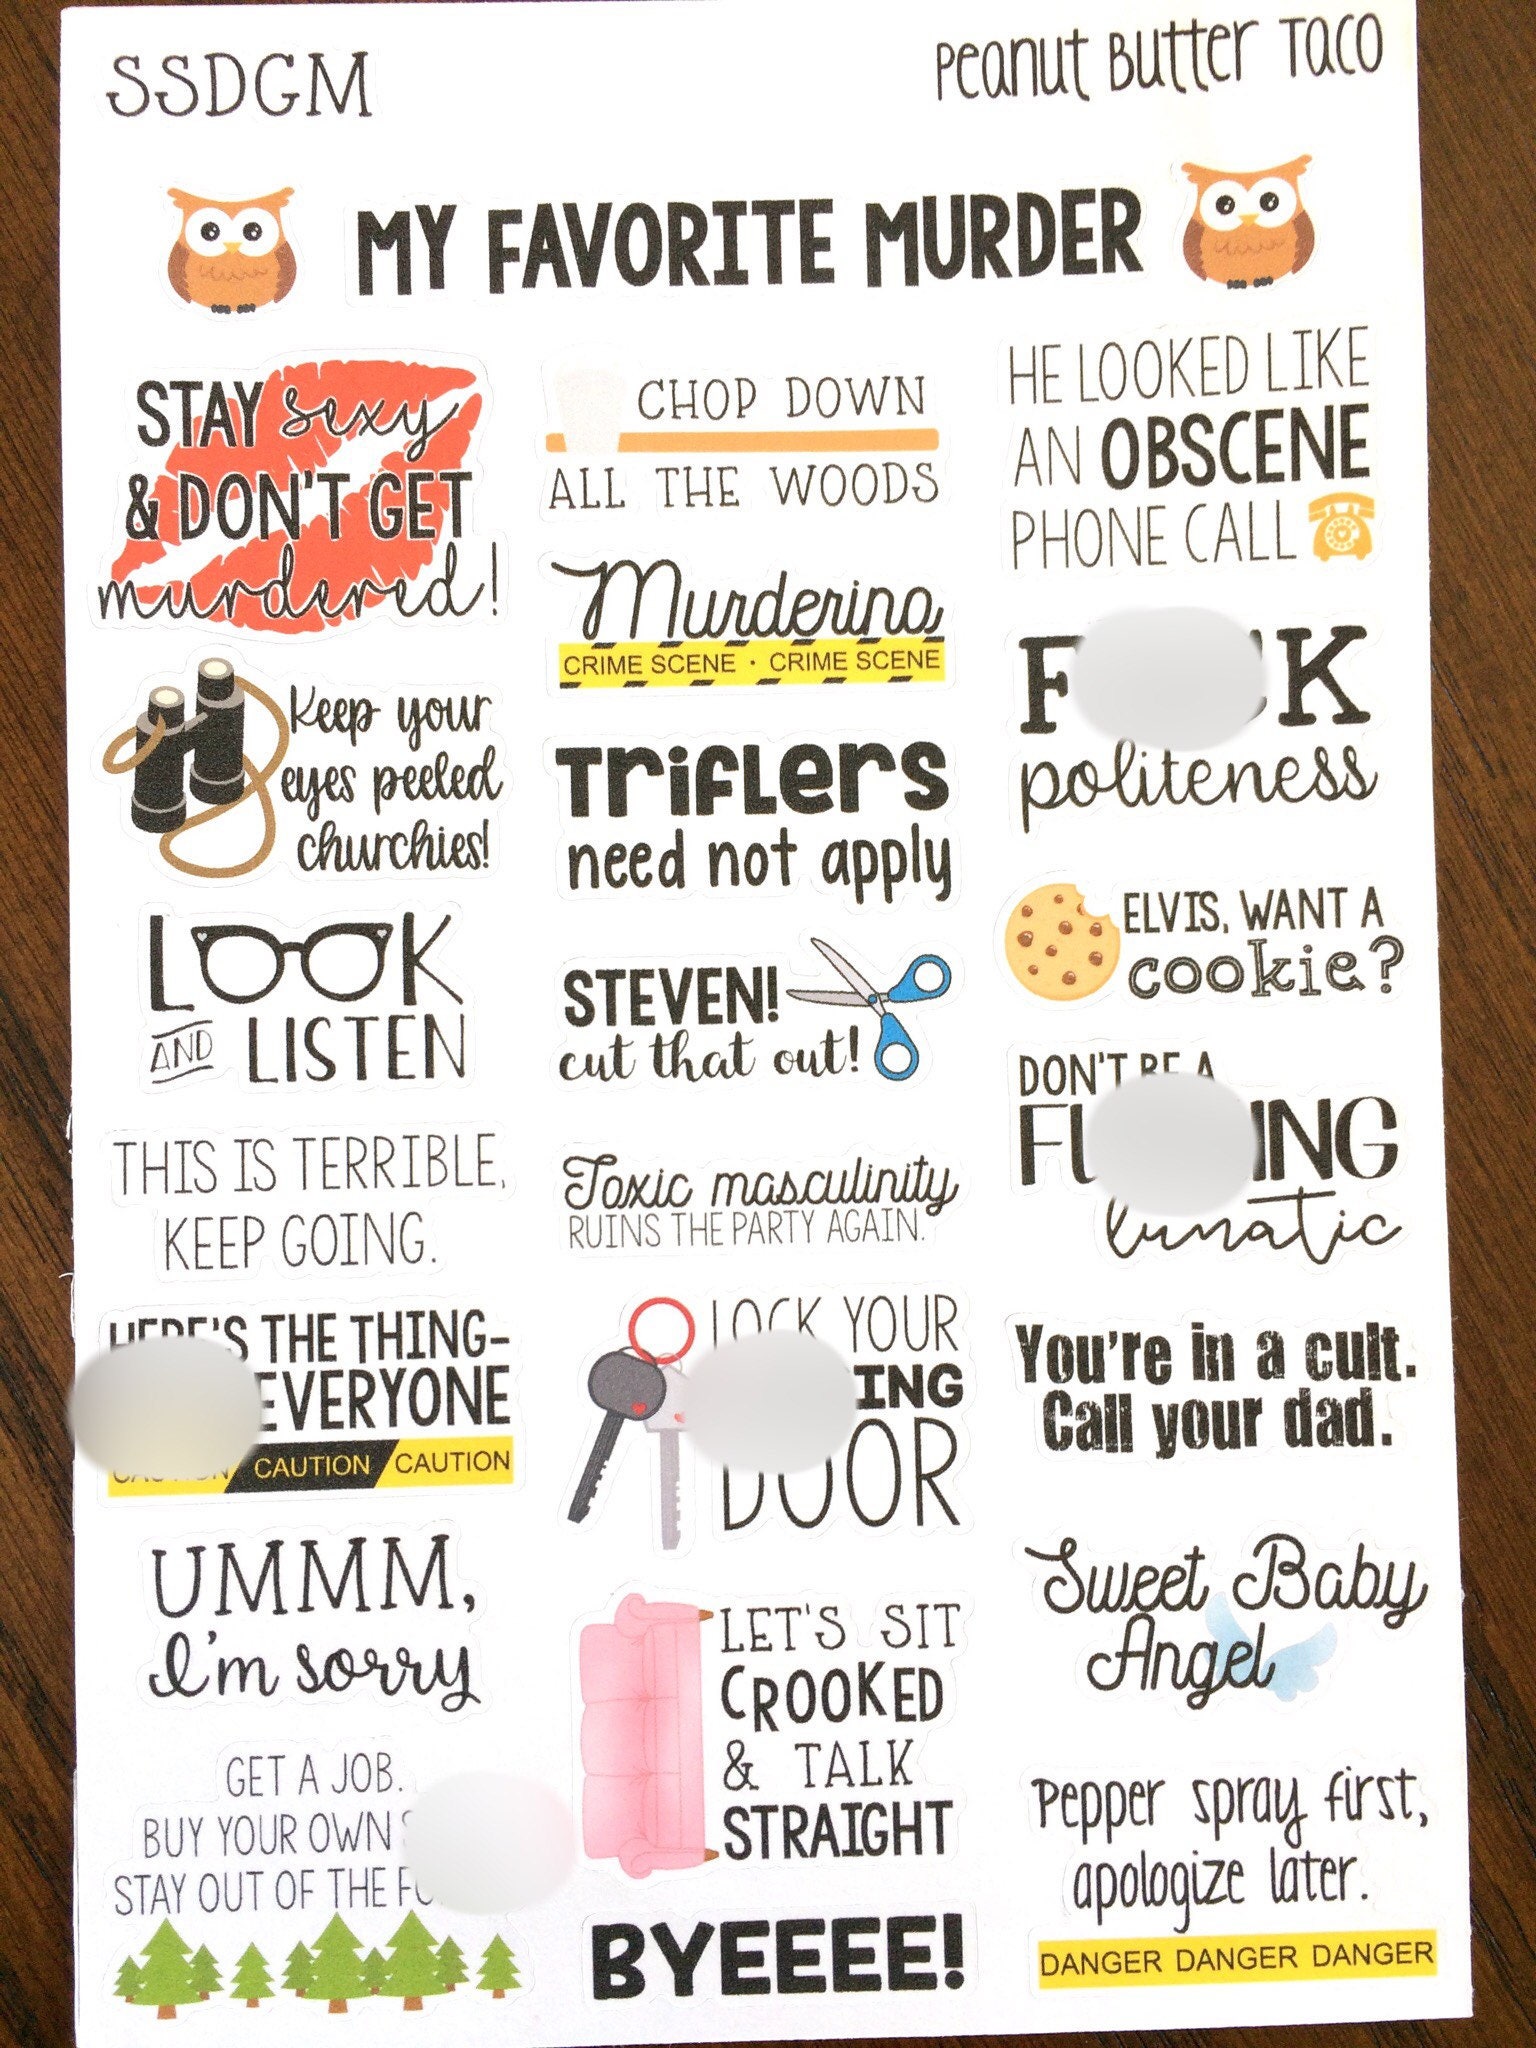 SSDGM
Peanut Butter Taco
MY FAVORITE MURDER
STAY sexy
& DON'T GET
murdered!
Keep your
eyes peeled
churchies!
LOOK
AND LISTEN
THIS IS TERRIBLE,
KEEP GOING.
HERE'S THE THING-
EVERYONE
CAUTION CAUTION CAUTION
UMMM,
I'm sorry
GET A JOB.
BUY YOUR OWN
STAY OUT OF THE
CHOP DOWN
ALL THE WOODS
Murderino
CRIME SCENE · CRIME SCENE
Triflers
need not apply
STEVEN!
cut that out!
Toxic masculinity
RUINS THE PARTY AGAIN.
LOCK YOUR
ING
DOOR
LET'S SIT
CROOKED
& TALK
STRAIGHT
BYEEEE!
HE LOOKED LIKE
AN OBSCENE
PHONE CALL
F K
politeness
ELVIS, WANT A
cookie?
DON'T BE A
FU ING
lunatic
You're in a cult.
Call your dad.
Sweet Baby
Angel
Pepper spray first,
apologize later.
DANGER DANGER DANGER